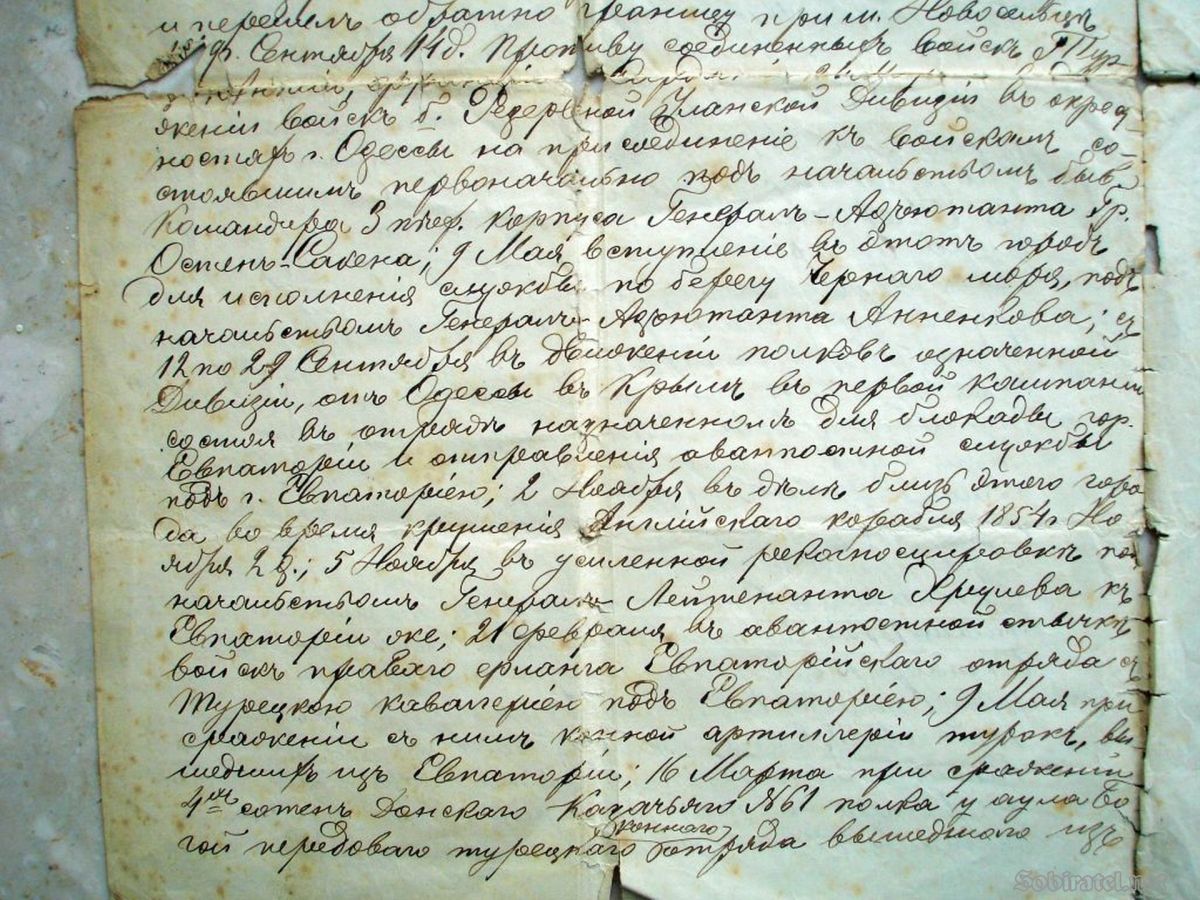 и перешелъ обратно границу при м. Новоселицѣ
9. Сентября 14д. Противу соединенныхъ войскъ Тур-
жении войскъ б. Резервной Уланской Дивизіи въ окрест
ностяхъ г. Одессы на присоединеніе къ войскамъ со-
стоявшимъ первоначально подъ начальствомъ быв.
Командира 3 пѣх. корпуса Генералъ-Адъютанта Гр.
Остенъ-Сакена; 9 Мая вступленіе въ этотъ городъ
для исполненія службы по берегу Чернаго моря, подъ
начальствомъ Генералъ-Адъютанта Анненкова; съ
12 по 29 Сентября въ движеніи полковъ означенной
Дивизіи, отъ Одессы въ Крымъ въ первой кампаніи
состоя въ отрядѣ назначенномъ для блокады гор.
Евпаторіи и отправленія аванпостной службы
подъ г. Евпаторіею; 2 Ноября въ дѣлѣ близъ этого горо
да во время крушенія Англійскаго корабля 1854 г. Но
ября 2 д.; 5 Ноября въ усиленной рекогносцировкѣ под
начальствомъ Генералъ-Лейтенанта Хрулева къ
Евпаторіи же; 21 февраля въ аванпостной стычкѣ
войскъ праваго фланга Евпаторійскаго отряда съ
Турецкою кавалеріею подъ Евпаторіею; 9 Мая при
сраженіи съ нимъ конной артиллеріи турокъ, вы-
шедшихъ изъ Евпаторіи; 16 Марта при сраженіи
4мя сотенъ Донскаго Казачьяго №61 полка у аула Бо
гой передоваго турецкаго конного отряда вышедшаго изъ
Sobiratel.net